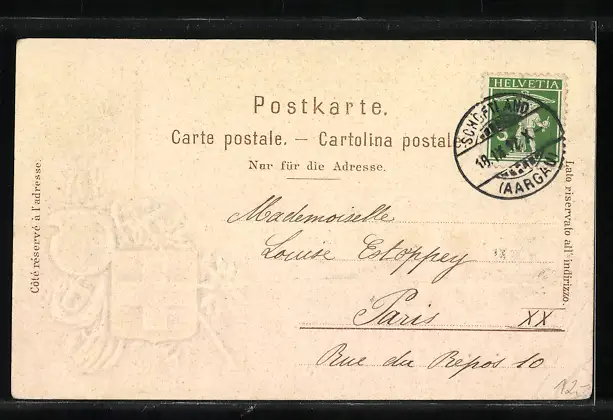 HELVETIA
Postkarte.
Carte postale. — Cartolina postal
Nur für die Adresse.
SCHOEFTLAND
(AARGAU)
Côté réservé à l'adresse.
Lato riservato all' indirizzo.
Mademoiselle
Louise Estoppey
Paris XX
Rue du Repos 10
12.-